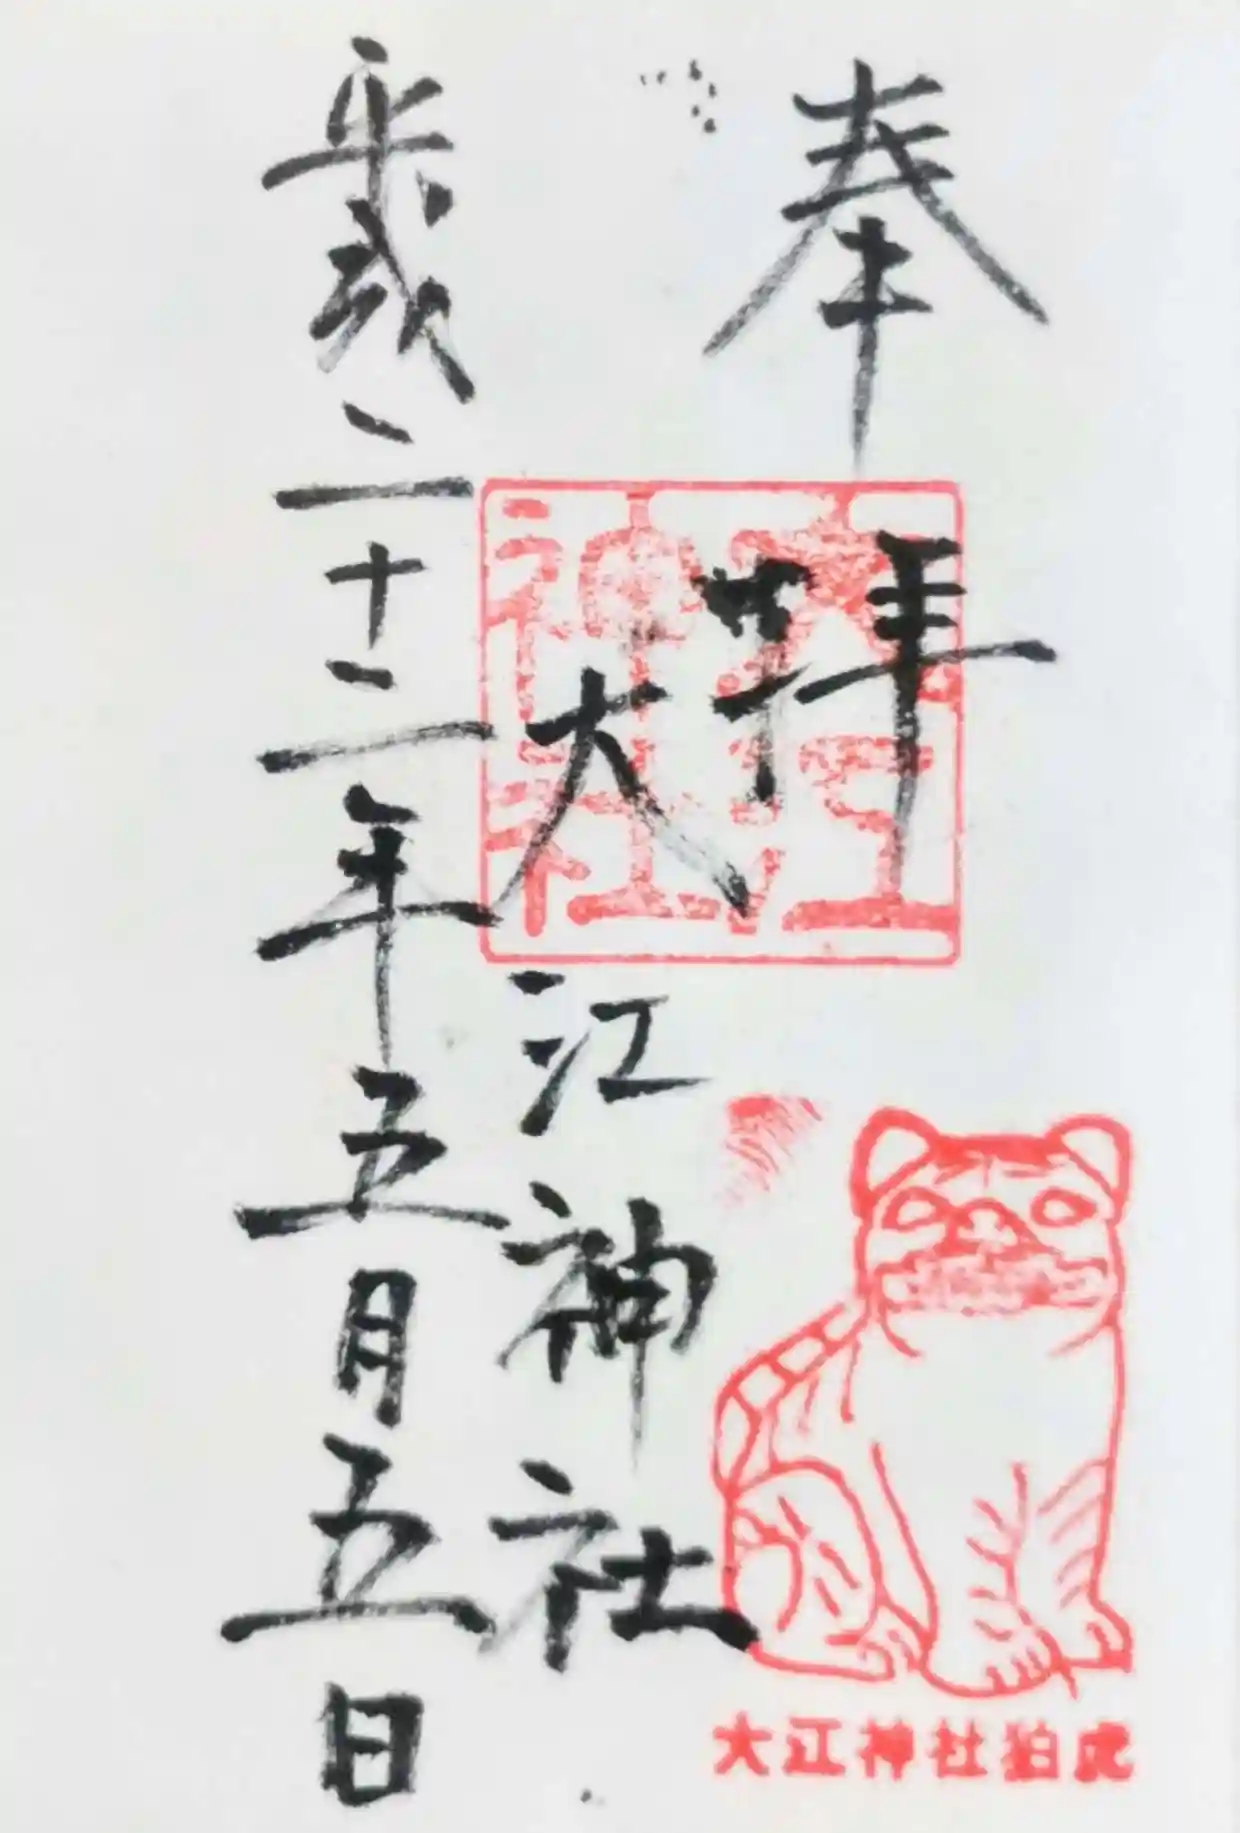 奉拝
大江神社
大江神社
平成二十二年五月五日
大江神社狛虎